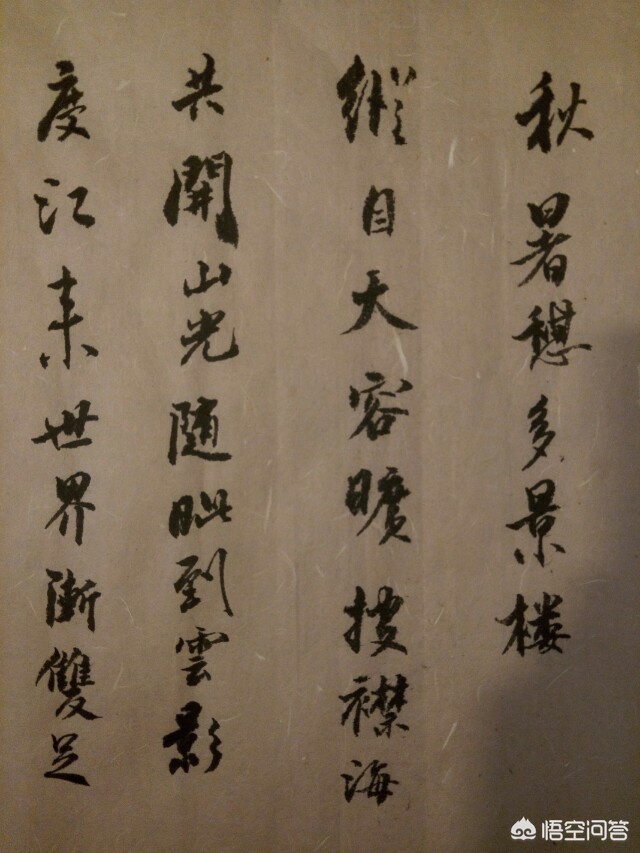 秋暑憩多景楼
縱目天容曠披襟海
共開山光隨眦到雲影
度江来世界漸雙足
悟空问答